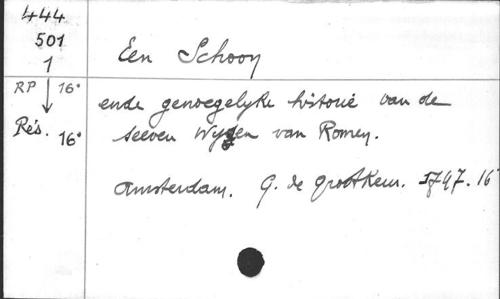 444
501
1
Een Schoon
RP 16°
ende genoegelyke historie van de
Rés. 16°
seeven Wyzen van Romen.
Amsterdam. G. de Groot Keur. 1747. 16°